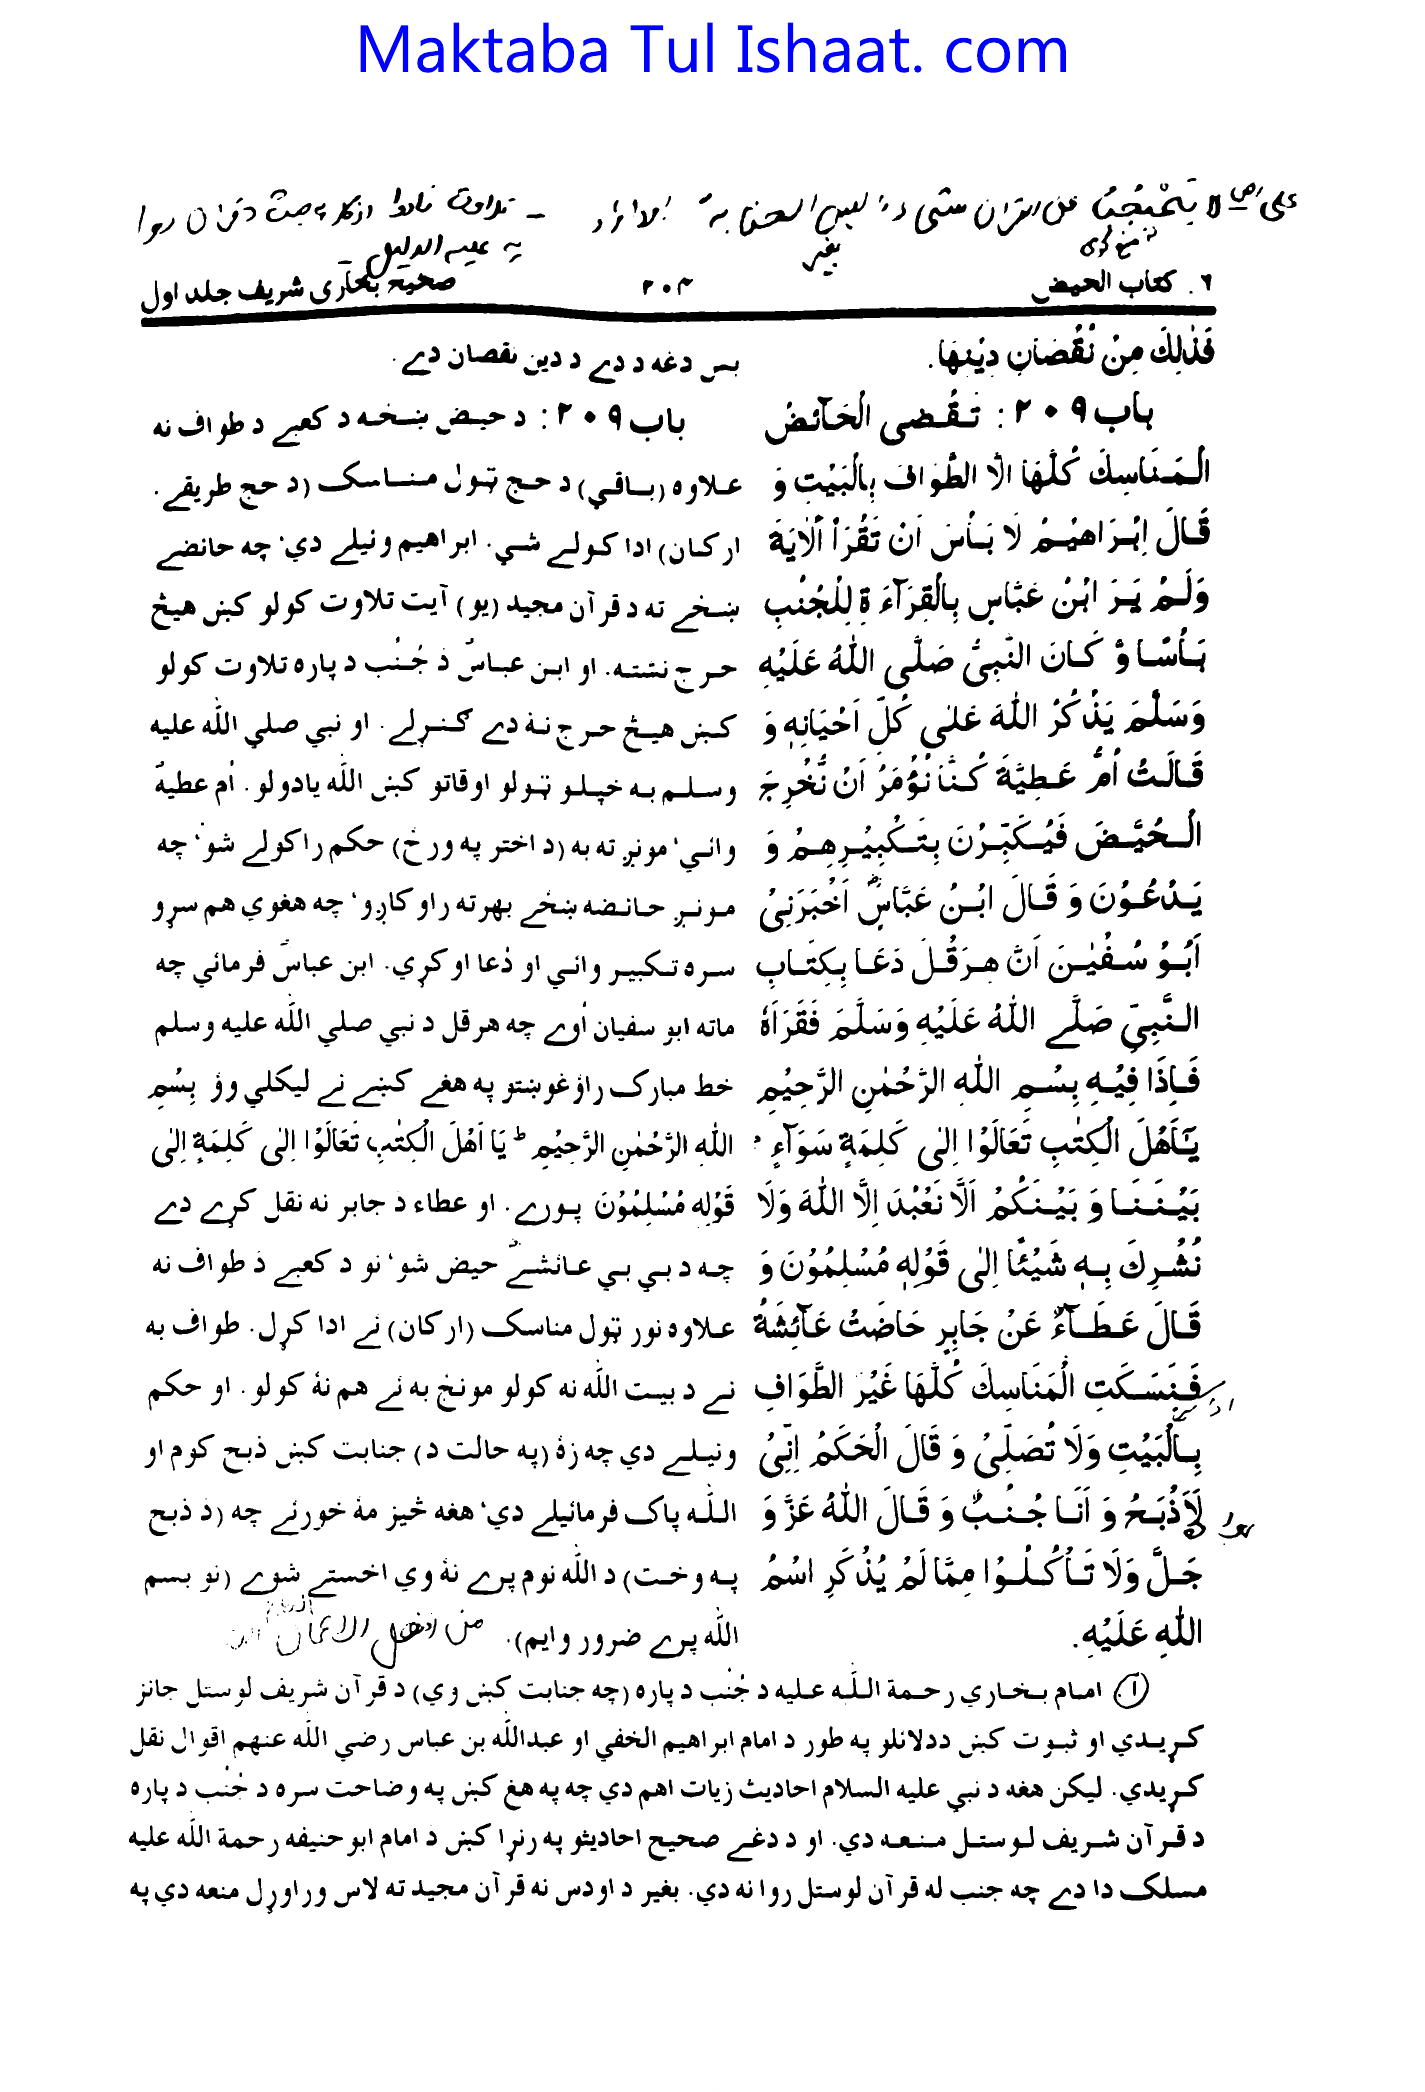 Maktaba Tul Ishaat. com
٦. کتاب الحیض
۲۰۴
صحیح بخاری شریف جلد اول
فَذٰلِكَ مِنْ نُقْصَانِ دِيْنِهَا.
باب ۲۰۹: تَقْضِی الْحَآئِضُ
الْمَنَاسِكَ كُلَّهَا اِلَّا الطَّوَافَ بِالْبَيْتِ وَ
قَالَ اِبْرَاهِيْمُ لَا بَأْسَ اَنْ تَقْرَأَ الْاٰيَةَ
وَلَمْ يَرَ ابْنُ عَبَّاسٍ بِالْقِرَآءَةِ لِلْجُنُبِ
بَأْسًا وَّ كَانَ النَّبِیُّ صَلَّی اللّٰهُ عَلَيْهِ
وَسَلَّمَ يَذْكُرُ اللّٰهَ عَلٰی كُلِّ اَحْيَانِهٖ وَ
قَالَتْ اُمُّ عَطِيَّةَ كُنَّا نُؤْمَرُ اَنْ نُّخْرِجَ
الْحُيَّضَ فَيُكَبِّرْنَ بِتَكْبِيْرِهِمْ وَ
يَدْعُوْنَ وَ قَالَ ابْنُ عَبَّاسٍؓ اَخْبَرَنِیْ
اَبُوْ سُفْيٰنَ اَنَّ هِرَقْلَ دَعَا بِكِتَابِ
النَّبِیِّ صَلَّے اللّٰهُ عَلَيْهِ وَسَلَّمَ فَقَرَاَهٗ
فَاِذَا فِيْهِ بِسْمِ اللّٰهِ الرَّحْمٰنِ الرَّحِيْمِ
يٰٓاَهْلَ الْكِتٰبِ تَعَالَوْا اِلٰی كَلِمَةٍ سَوَآءٍ
بَيْنَنَا وَ بَيْنَكُمْ اَلَّا نَعْبُدَ اِلَّا اللّٰهَ وَلَا
نُشْرِكَ بِهٖ شَيْئًا اِلٰی قَوْلِهٖ مُسْلِمُوْنَ وَ
قَالَ عَطَآءٌ عَنْ جَابِرٍ حَاضَتْ عَآئِشَةُ
فَنَسَكَتِ الْمَنَاسِكَ كُلَّهَا غَيْرَ الطَّوَافِ
بِالْبَيْتِ وَلَا تُصَلِّیْ وَ قَالَ الْحَكَمُ اِنِّیْ
لَاَذْبَحُ وَ اَنَا جُنُبٌ وَ قَالَ اللّٰهُ عَزَّ وَ
جَلَّ وَلَا تَأْكُلُوْا مِمَّا لَمْ يُذْكَرِ اسْمُ
اللّٰهِ عَلَيْهِ.
بس دغه د دے د دین نقصان دے.
باب ۲۰۹: د حیض ښځه د کعبے د طواف نه
علاوه (باقي) د حج ټول مناسک (د حج طریقے.
ارکان) ادا کولے شي. ابراهیم وئیلے دي٬ چه حائضے
ښځے ته د قرآن مجید (یو) آیت تلاوت کولو کښ هیڅ
حرج نشته. او ابن عباسؓ د جُنُب د پاره تلاوت کولو
کښ هیڅ حرج نۀ دے ګنړلے. او نبي صلي الله علیه
وسلم به خپلو ټولو اوقاتو کښ الله یادولو. اُم عطیهؓ
وائي٬ مونږ ته به (د اختر په ورځ) حکم راکولے شو٬ چه
مونږ حائضه ښځے بهر ته راوکاږو٬ چه هغوي هم سرو
سره تکبیر وائي او دُعا اوکړي. ابن عباسؓ فرمائي چه
ماته ابو سفیان اُوے چه هرقل د نبي صلي الله علیه وسلم
خط مبارک راؤغوښتو په هغے کښے ئے لیکلي وؤ بِسْمِ
اللهِ الرَّحْمٰنِ الرَّحِيْمِ ط يَا اَهْلَ الْكِتٰبِ تَعَالَوْا اِلٰی كَلِمَةٍ اِلٰی
قَوْلِهٖ مُسْلِمُوْنَ پورے. او عطاء د جابر نه نقل کړے دے
چه د بي بي عائشےؓ حیض شو٬ نو د کعبے د طواف نه
علاوه نور ټول مناسک (ارکان) ئے ادا کړل. طواف به
ئے د بیت الله نه کولو مونځ به ئے هم نۀ کولو. او حکم
وئیلے دي چه زۀ (په حالت د) جنابت کښ ذبح کوم او
الله پاک فرمائیلے دي٬ هغه څیز مۀ خورئے چه (د ذبح
په وخت) د الله نوم پرے نۀ وي اخستے شوے (نو بسم
الله پرے ضرور وایم).
(۱) امام بخاري رحمة الله علیه د جُنُب د پاره (چه جنابت کښ وي) د قرآن شریف لوستل جائز
کړیدي او ثبوت کښ ددلائلو په طور د امام ابراهیم الخفي او عبدالله بن عباس رضي الله عنهم اقوال نقل
کړیدي. لیکن هغه د نبي علیه السلام احادیث زیات اهم دي چه په هغ کښ په وضاحت سره د جُنُب د پاره
د قرآن شریف لوستل منعه دي. او د دغے صحیح احادیثو په رنړا کښ د امام ابوحنیفه رحمة الله علیه
مسلک دا دے چه جنب له قرآن لوستل روا نه دي. بغیر د اودس نه قرآن مجید ته لاس وراوړل منعه دي په